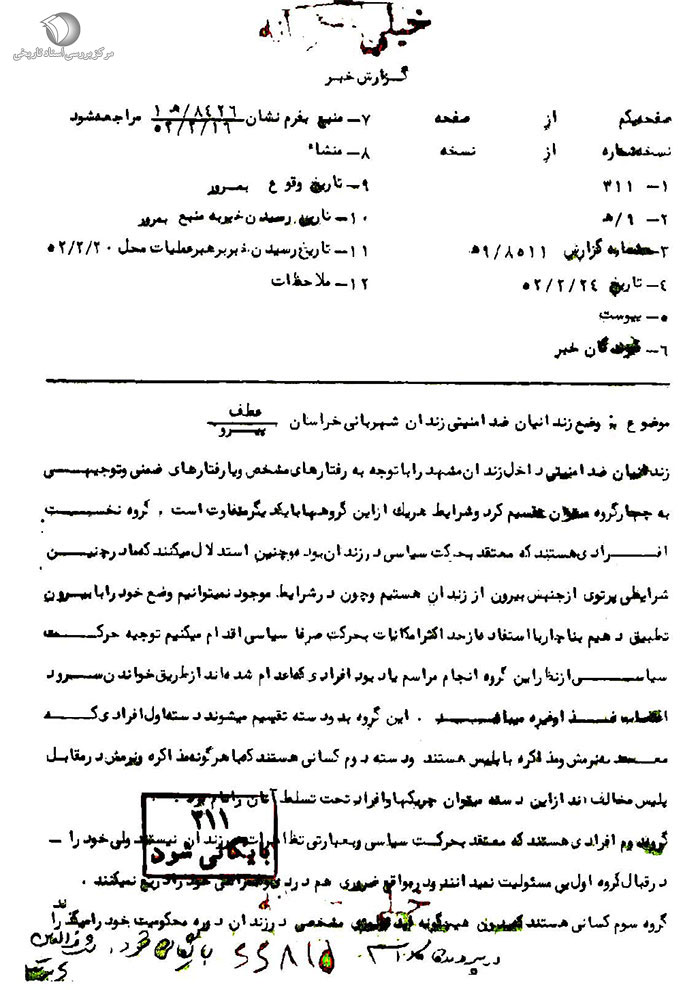 مرکز بررسی اسناد تاریخی
خیلی
گزارش خبر
صفحه یکم از صفحه
نسخه شماره از نسخه
۱- ۳۱۱
۲- ۹/ ه
۳- شماره گزارش ۹/۸۵۱۱ ه
۴- تاریخ ۵۲/۲/۲۴
۵- پیوست
۶- گیرندگان خبر
۷- منبع بفرم نشان ۸۴۲۶/ ه ۱ ۵۲/۲/۱۶ مراجعه شود
۸- منشاء
۹- تاریخ وقوع بمرور
۱۰- تاریخ رسیدن خبر به منبع بمرور
۱۱- تاریخ رسیدن خبر برهبر عملیات محل ۵۲/۲/۲۰
۱۲- ملاحظات
موضوع : وضع زندانیان ضد امنیتی زندان شهربانی خراسان عطف پیرو
زندانیان ضد امنیتی داخل زندان مشهد را با توجه به رفتارهای مشخص ویا رفتارهای ضمنی وتوجیهی
به چهار گروه میتوان تقسیم کرد وشرایط هریک از این گروهها با یکدیگر متفاوت است . گروه نخست
افرادی هستند که معتقد بحرکت سیاسی در زندان بوده وچنین استدلال میکنند که ما در چنین
شرایطی پرتوی از جنبش بیرون از زندان هستیم وچون در شرایط موجود نمیتوانیم وضع خود را با بیرون
تطبیق دهیم بناچار با استفاده از حد اکثر امکانات بحرکت صرفا سیاسی اقدام میکنیم توجیه حرکت
سیاسی از نظر این گروه انجام مراسم یاد بود افرادی که اعدام شده اند از طریق خواندن سرود
اعتصاب غذا وغیره میباشد . این گروه بدو دسته تقسیم میشوند دسته اول افرادی که
معتقد به نرمش ومذاکره با پلیس هستند ودسته دوم کسانی هستند که با هرگونه مذاکره ونرمش در مقابل
پلیس مخالف اند از این دسته میتوان چریکها وافراد تحت تسلط آنان را نام برد .
گروه دوم افرادی هستند که معتقد بحرکت سیاسی وبعبارتی تظاهرات در زندان نیستند ولی خود را -
در قبال گروه اول بی مسئولیت نمیدانند ودر مواقع ضروری هم دردی وهمراهی خود را دریغ نمیکنند .
گروه سوم کسانی هستند که بدون هیچگونه مشخصی در زندان دوره محکومیت خود را میگذرانند
۳۱۱
بایگانی شود
در پرونده کلاسه ۵۵۸۱۵ بایگانی شود